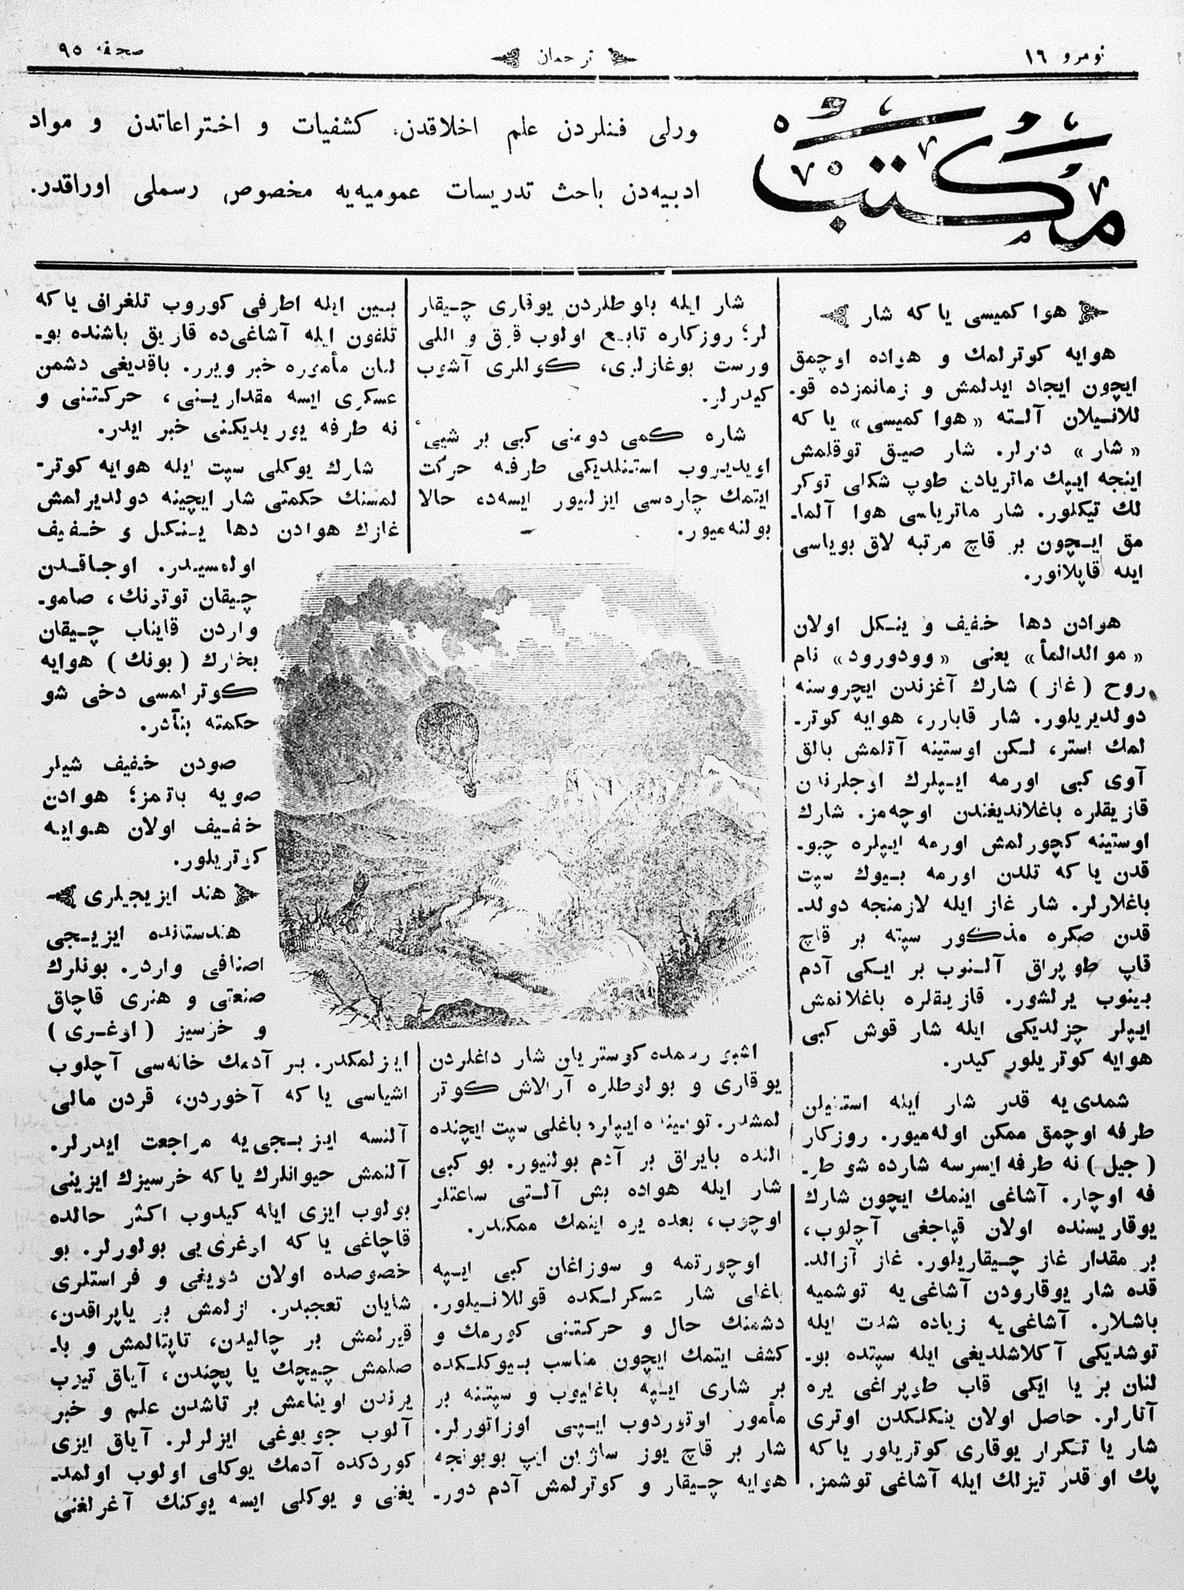 نومرو ١٦
ترجمان
صحفه ٩٥
مكتب
ورلى فنلردن علم اخلاقدن، كشفيات و اختراعاتدن و مواد
ادبيه‌دن باحث تدريسات عموميه‌يه مخصوص رسملى اوراقدر.
هوا كميسى ياكه شار
هوايه كوترلمك و هواده اوچمق
ايچون ايجاد ايدلمش و زمانمزده قو-
للانيلان آلته «هوا كميسى» ياكه
«شار» ديرلر. شار صيق توقلمش
اينجه ايپك ماتريادن طوپ شكلى توكر
لك تيكلور. شار ماترياسى هوا آلما-
مق ايچون بر قاچ مرتبه لاق بوياسى
ايله قاپلانور.
هوادن دها خفيف و ينكل اولان
«مولدالمأ» يعنى «وودورود» نام
روح (غاز) شارك آغزندن ايچروسنه
دولديريلور. شار قابارر، هوايه كوتر-
لمك استر، لكن اوستينه آتلمش بالق
آوى كبى اورمه ايپلرك اوجلرندن
قازيقلره باغلانديغندن اوچه‌مز. شارك
اوستينه كچورلمش اورمه ايپلره چبو-
قدن ياكه تلدن اورمه بيوك سپت
باغلارلر. شار غاز ايله لازمنجه دولد-
قدن صكره مذكور سپته بر قاچ
قاپ طوپراق آلنوب بر ايكى آدم
بينوب يرلشور. قازيقلره باغلانمش
ايپلر چزلديكى ايله شار قوش كبى
هوايه كوتريلور كيدر.
شمدى‌يه قدر شار ايله استنيلن
طرفه اوچمق ممكن اوله‌ميور. روزكار
(جيل) نه طرفه ايسرسه شارده شو طر-
فه اوچار. آشاغى اينمك ايچون شارك
يوقاريسنده اولان قپاجغى آچلوب،
بر مقدار غاز چيقاريلور. غاز آزالد-
قده شار يوقارودن آشاغى‌يه توشميه
باشلار. آشاغى‌يه زياده شدت ايله
توشديكى آكلاشلديغى ايله سپتده بو-
لنان بر يا ايكى قاب طوپراغى يره
آتارلر. حاصل اولان ينكلكدن اوترى
شار يا تكرار يوقارى كوتريلور ياكه
پك اوقدر تيزلك ايله آشاغى توشمز.
شار ايله بلوطلردن يوقارى چيقار
لر؛ روزكاره تابع اولوب قرق و اللى
ورست بوغازلرى، كوللرى آشوب
كيدرلر.
شاره كمى دومنى كبى بر شيئ
اويديروب استنلديكى طرفه حركت
ايتمك چاره‌سى ايزلنيور ايسه‌ده، حالا
بولنه‌ميور.
اشبو رسمده كوستريلن شار داغلردن
يوقارى و بولوطلره آرالاش كوتر
لمشدر. توبينده ايپلره باغلى سپت ايچنده
النده بايراق بر آدم بولنيور. بو كبى
شار ايله هواده بش آلتى ساعتلر
اوچوب، بعده يره اينمك ممكندر.
اوچورتمه و سوزاغان كبى ايپه
باغلى شار عسكرلكده قوللانيلور.
دشمنك حال و حركتنى كورمك و
كشف ايتمك ايچون مناسب بيوكلكده
بر شارى ايپه باغليوب و سپتنه بر
مأمور اوتوردوب ايپى اوزاتورلر.
شار بر قاچ يوز ساژين ايپ بويونجه
هوايه چيقار و كوترلمش آدم دور-
بين ايله اطرفى كوروب تلغراف ياكه
تلفون ايله آشاغى‌ده قازيق باشنده بو-
لنان مأموره خبر ويرر. باقديغى دشمن
عسكرى ايسه مقدارينى، حركتنى و
نه طرفه يوريديكنى خبر ايدر.
شارك يوكلى سپت ايله هوايه كوتر-
لمسنك حكمتى شار ايچينه دولديرلمش
غازك هوادن دها ينكل و خفيف
اولمسيدر. اوجاقدن
چيقان توتونك، صامو-
واردن قايناب چيقان
بخارك (بونك) هوايه
كوترلمسى دخى شو
حكمته بنآدر.
صودن خفيف شيلر
صويه باتمز؛ هوادن
خفيف اولان هوايه
كوتريلور.
هند ايزيجيلرى
هندستانده ايزيجى
اصنافى واردر. بونلرك
صنعتى و هنرى قاچاق
و خرسيز (اوغرى)
ايزلمكدر. بر آدمك خانه‌سى آچلوب
اشياسى ياكه آخوردن، قردن مالى
آلنسه ايزيجى‌يه مراجعت ايدرلر.
آلنمش حيوانلرك ياكه خرسيزك ايزينى
بولوب ايزى ايله كيدوب اكثر حالده
قاچاغى ياكه اوغرى‌يى بولورلر. بو
خصوصده اولان دويغى و فراستلرى
شايان تعجبدر. ازلمش بر ياپراقدن،
قيرلمش بر چاليدن، تاپتالمش و با-
صلمش چيچك يا پچندن، آياق تيوب
يرندن اوينامش بر تاشدن علم و خبر
آلوب جويوغى ايزلرلر. آياق ايزى
كوردكده آدمك يوكلى اولوب اولمد-
يغنى و يوكلى ايسه يوكنك آغرلغنى